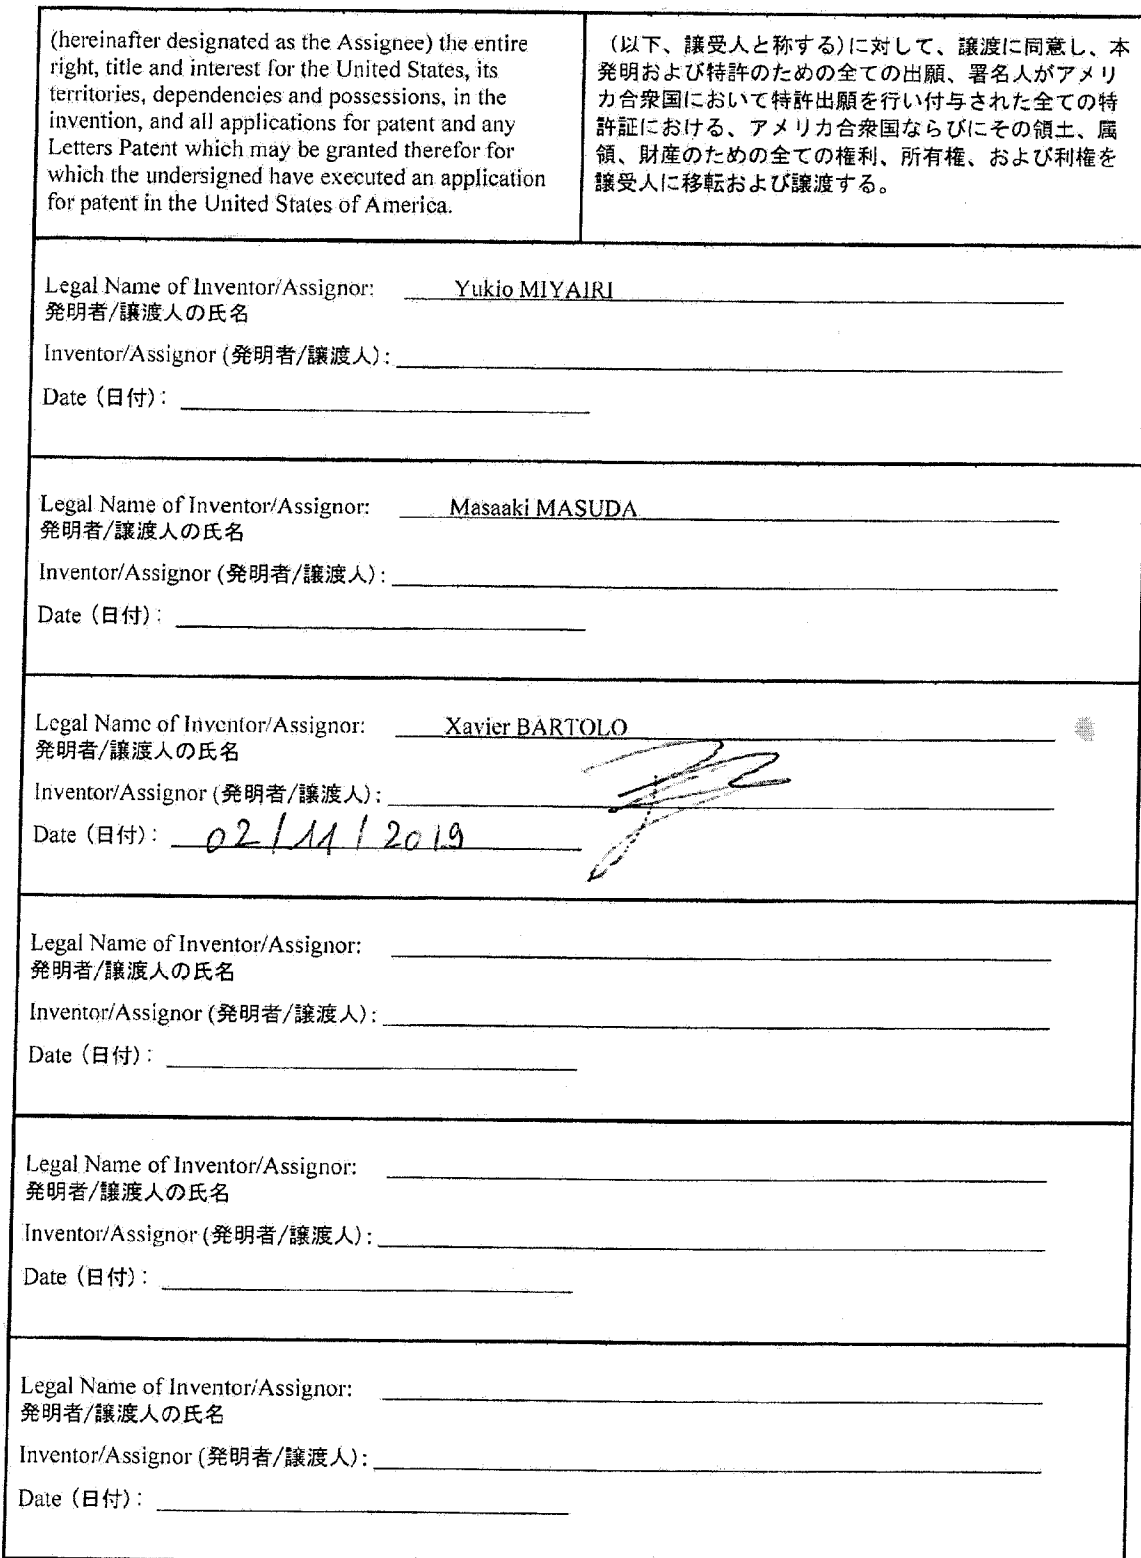 (hereinafter designated as the Assignee) the entire
right, title and interest for the United States, its
territories, dependencies and possessions, in the
invention, and all applications for patent and any
Letters Patent which may be granted therefor for
which the undersigned have executed an application
for patent in the United States of America.
(以下、譲受人と称する)に対して、譲渡に同意し、本
発明および特許のための全ての出願、署名人がアメリ
カ合衆国において特許出願を行い付与された全ての特
許証における、アメリカ合衆国ならびにその領土、属
領、財産のための全ての権利、所有権、および利権を
譲受人に移転および譲渡する。
Legal Name of Inventor/Assignor: Yukio MIYAIRI
発明者/譲渡人の氏名
Inventor/Assignor (発明者/譲渡人):
Date (日付):
Legal Name of Inventor/Assignor: Masaaki MASUDA
発明者/譲渡人の氏名
Inventor/Assignor (発明者/譲渡人):
Date (日付):
Legal Name of Inventor/Assignor: Xavier BARTOLO
発明者/譲渡人の氏名
Inventor/Assignor (発明者/譲渡人):
Date (日付): 02/11/2019
Legal Name of Inventor/Assignor:
発明者/譲渡人の氏名
Inventor/Assignor (発明者/譲渡人):
Date (日付):
Legal Name of Inventor/Assignor:
発明者/譲渡人の氏名
Inventor/Assignor (発明者/譲渡人):
Date (日付):
Legal Name of Inventor/Assignor:
発明者/譲渡人の氏名
Inventor/Assignor (発明者/譲渡人):
Date (日付):